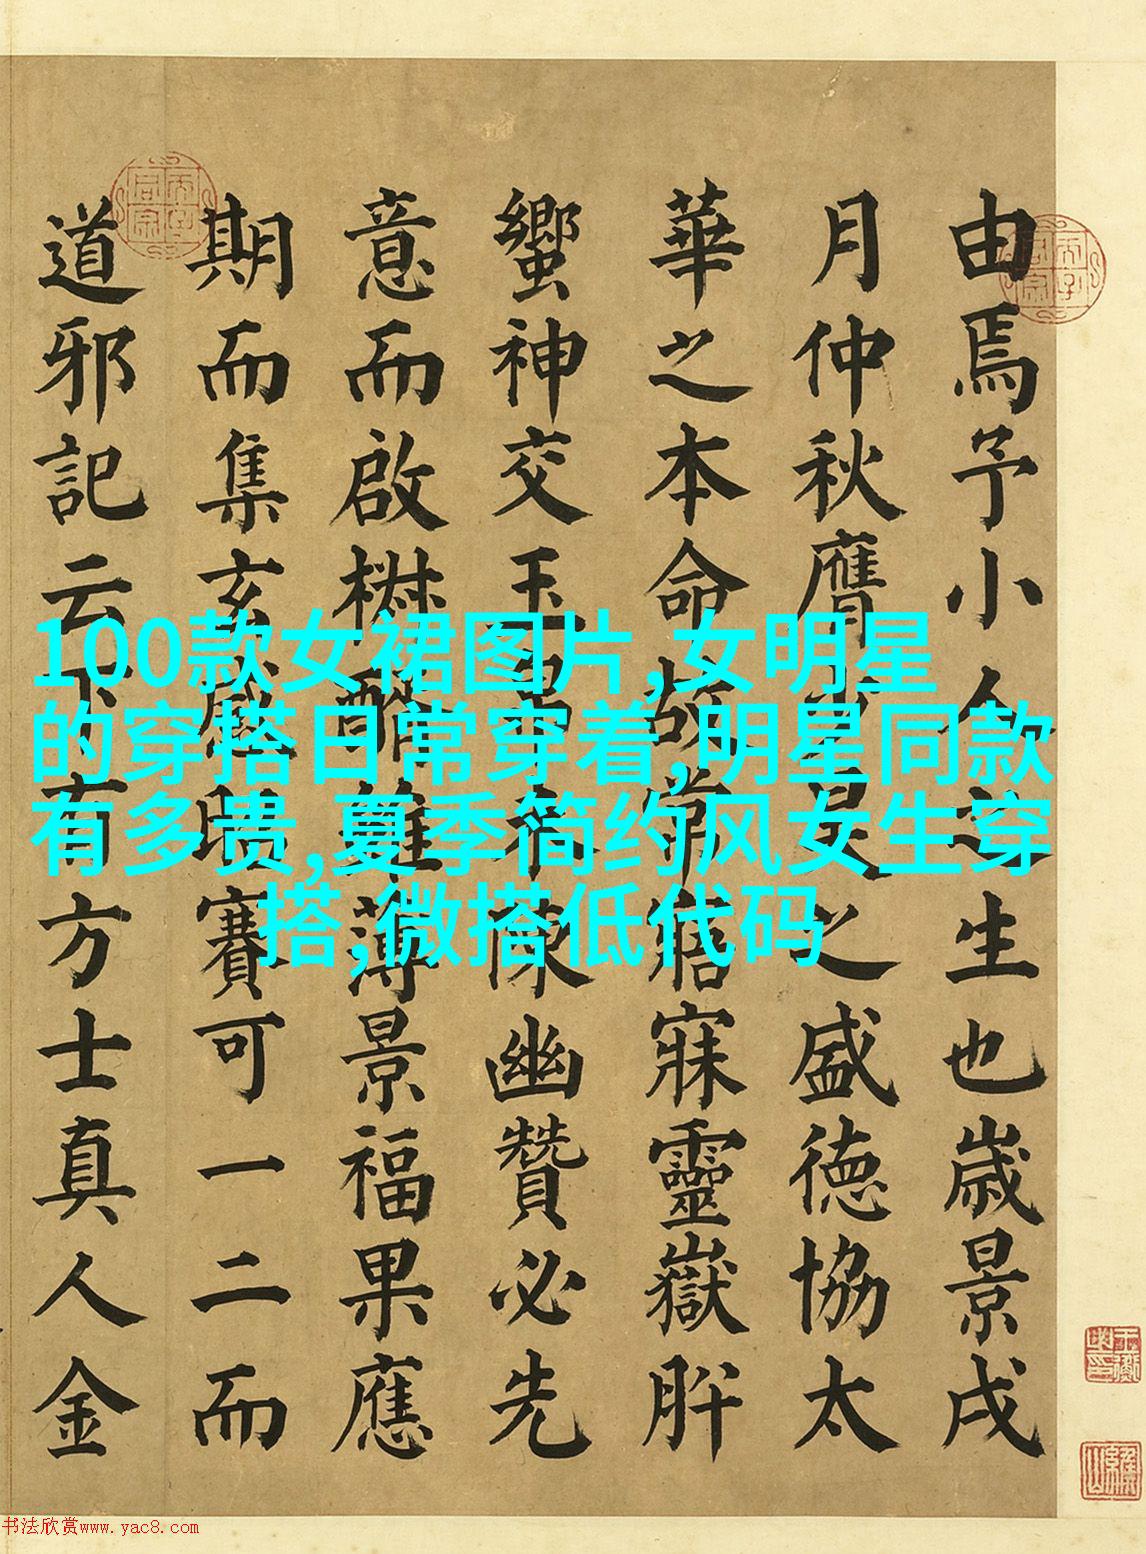 由焉予小人之生也歲景戌
月仲秋膺少昊之盛德協太
華之本命故常寤寐靈嶽肸
蠁神交玉帛未陳幽贊必先
意而啟椒醑雖薄景福果應
期而集玄感昭賽可一二而
道邪記云下有方士真人金
100款女裙图片,女明星
的穿搭日常穿着,明星同款
有多贵,夏季简约风女生穿
搭,微搭低代码
书法欣赏www.yac8.com